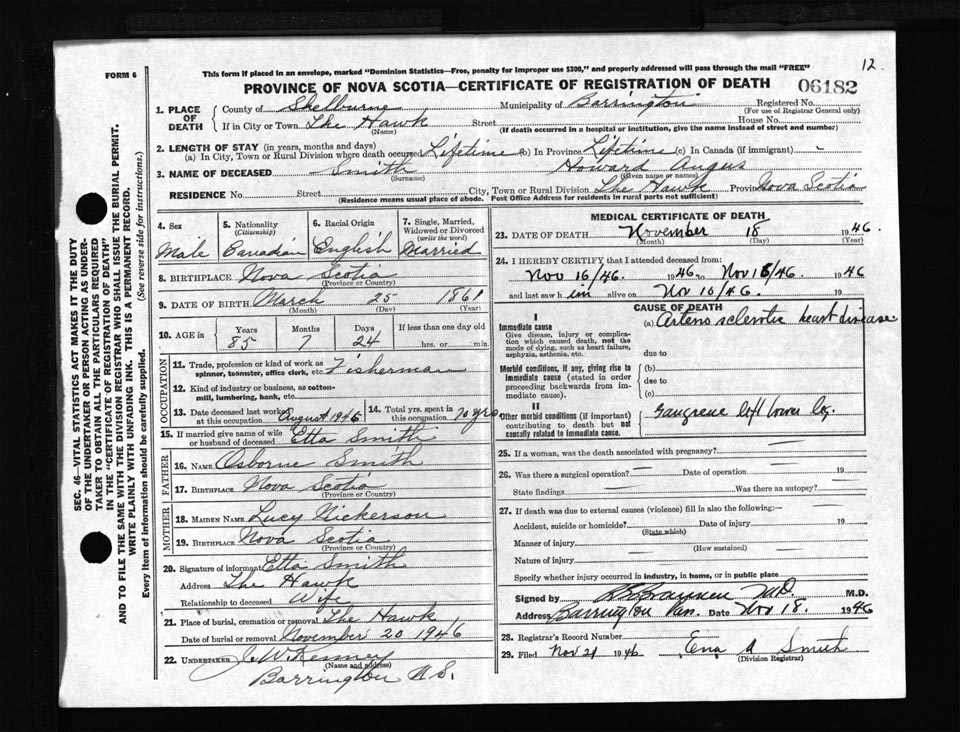 12.
FORM 6
This form if placed in an envelope, marked "Dominion Statistics—Free, penalty for improper use $300," and properly addressed will pass through the mail "FREE"
PROVINCE OF NOVA SCOTIA—CERTIFICATE OF REGISTRATION OF DEATH 06182
1. PLACE OF DEATH
County of Shelburne Municipality of Barrington Registered No.
(For use of Registrar General only)
If in City or Town The Hawk Street House No.
(Name) (If death occurred in a hospital or institution, give the name instead of street and number)
2. LENGTH OF STAY (in years, months and days)
(a) In City, Town or Rural Division where death occurred Lifetime (b) In Province Lifetime (c) In Canada (if immigrant) -
3. NAME OF DECEASED Smith Howard Angus
(Surname) (Given name or names)
RESIDENCE No. Street City, Town or Rural Division The Hawk Province Nova Scotia
(Residence means usual place of abode. Post Office Address for residents in rural parts not sufficient)
4. Sex 5. Nationality (Citizenship) 6. Racial Origin 7. Single, Married, Widowed or Divorced (write the word)
Male Canadian English Married
8. BIRTHPLACE Nova Scotia
(Province or Country)
9. DATE OF BIRTH March 25 1861
(Month) (Day) (Year)
10. AGE in Years Months Days If less than one day old
85 7 24 hrs. or min.
OCCUPATION
11. Trade, profession or kind of work as spinner, teamster, office clerk, etc. Fisherman
12. Kind of industry or business, as cotton-mill, lumbering, bank, etc.
13. Date deceased last worked at this occupation August 1946 14. Total yrs. spent in this occupation 70 yrs
15. If married give name of wife or husband of deceased Etta Smith
FATHER
16. NAME Osborne Smith
17. BIRTHPLACE Nova Scotia
(Province or Country)
MOTHER
18. MAIDEN NAME Lucy Nickerson
19. BIRTHPLACE Nova Scotia
(Province or Country)
20. Signature of informant Etta Smith
Address The Hawk
Relationship to deceased Wife
21. Place of burial, cremation or removal The Hawk
Date of burial or removal November 20 1946
22. UNDERTAKER J. W. Kenney
(Name and address)
Barrington N.S.
MEDICAL CERTIFICATE OF DEATH
23. DATE OF DEATH November 18 1946.
(Month) (Day) (Year)
24. I HEREBY CERTIFY that I attended deceased from:
Nov 16/46. 1946 to Nov 18/46. 1946
and last saw h im alive on Nov 18/46. 19
CAUSE OF DEATH
I
Immediate cause (a) Arterio sclerotic heart disease
Give disease, injury or complication which caused death, not the mode of dying, such as heart failure, asphyxia, asthenia, etc.
due to
Morbid conditions, if any, giving rise to immediate cause (stated in order proceeding backwards from immediate cause).
(b)
due to
(c)
II
Other morbid conditions (if important) contributing to death but not causally related to immediate cause.
Gangrene left lower leg.
25. If a woman, was the death associated with pregnancy?
26. Was there a surgical operation? Date of operation 19
State findings Was there an autopsy?
27. If death was due to external causes (violence) fill in also the following:—
Accident, suicide or homicide? Date of injury 19
(State which)
Manner of injury
(How sustained)
Nature of injury
Specify whether injury occurred in industry, in home, or in public place
Signed by M.D. M.D.
Address Barrington Date Nov 18. 1946
28. Registrar's Record Number
29. Filed Nov 21 1946 Ena A Smith
(Division Registrar)
SEC. 46—VITAL STATISTICS ACT MAKES IT THE DUTY
OF THE UNDERTAKER OR PERSON ACTING AS UNDER-
TAKER TO OBTAIN ALL THE PARTICULARS REQUIRED
IN THE "CERTIFICATE OF REGISTRATION OF DEATH"
AND TO FILE THE SAME WITH THE DIVISION REGISTRAR WHO SHALL ISSUE THE BURIAL PERMIT.
WRITE PLAINLY WITH UNFADING INK. THIS IS A PERMANENT RECORD.
Every item of information should be carefully supplied. (See reverse side for instructions.)